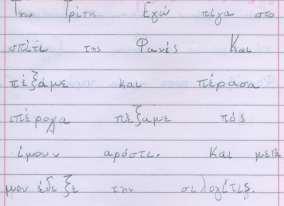 Την Τρίτη Εγώ πίγα στο
σπίτι της Φανές Και
πέξαμε και πέρασα
επέροχα πέξαμε πός
ίμουν αρόστι. Και μετά
μου έδεξε την σιλογίτις.